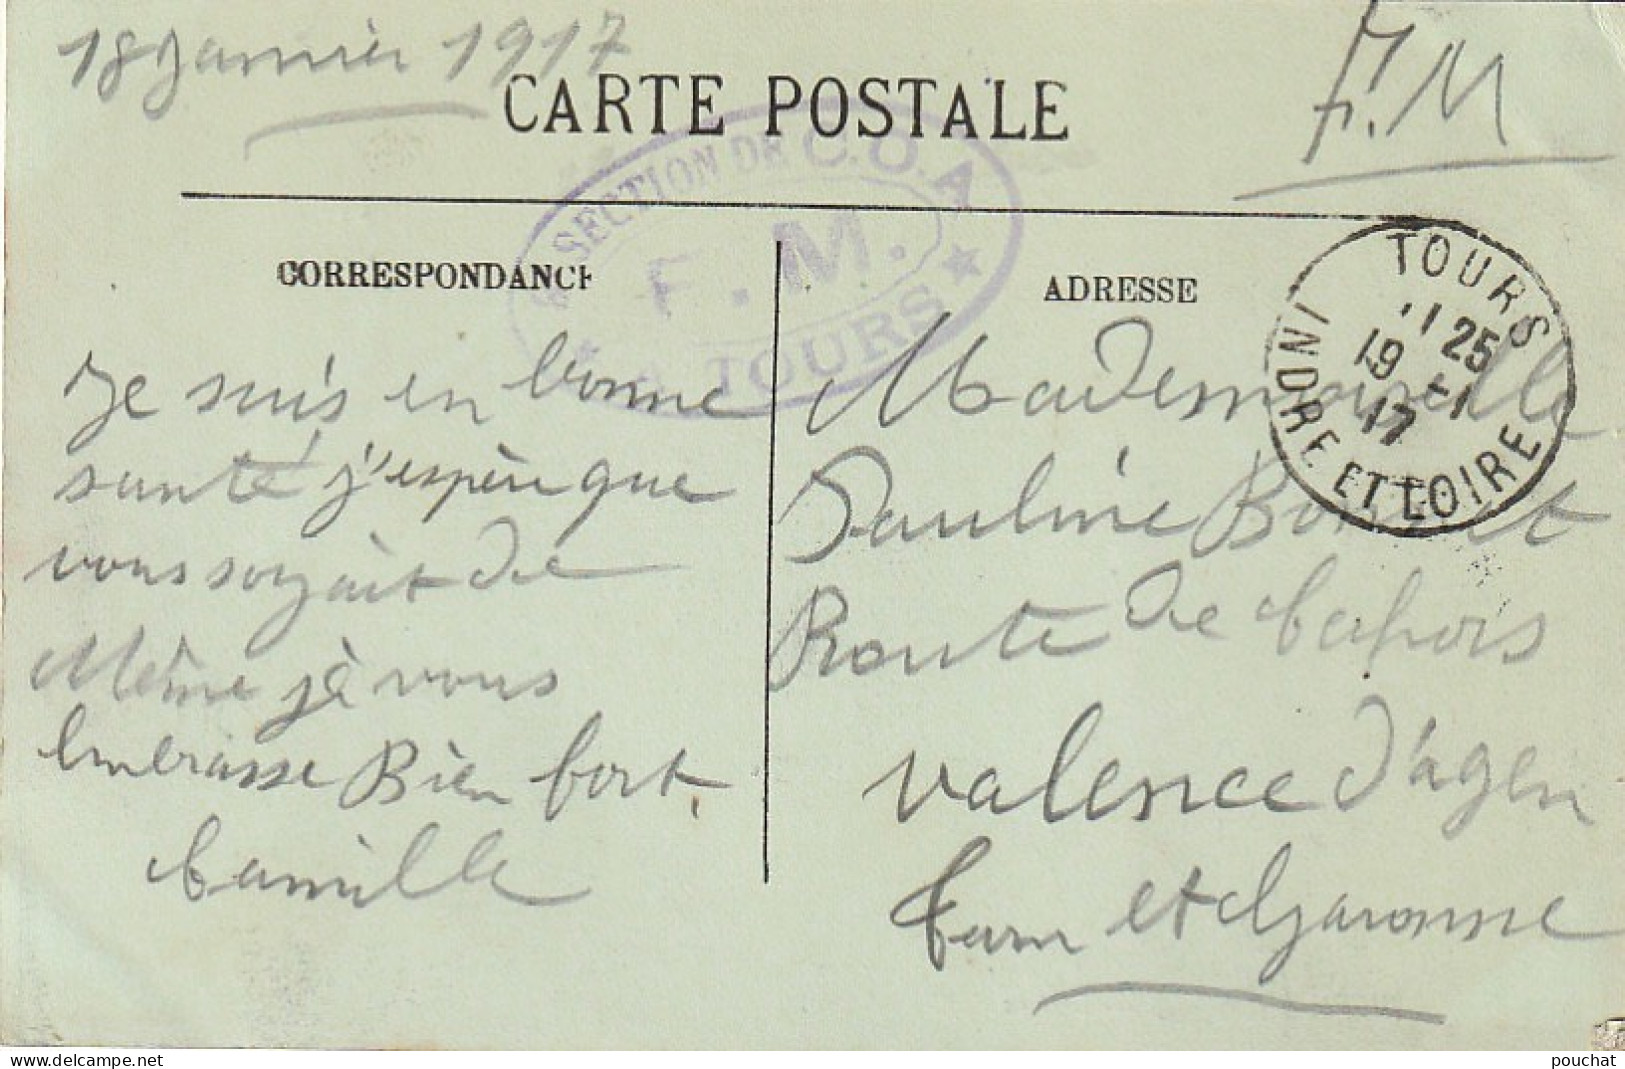 18 Janvier 1917
F.M
CARTE POSTALE
SECTION DE C.O.A
F.M.
TOURS
CORRESPONDANCE
ADRESSE
TOURS
11 25
19 -1
17
INDRE ET LOIRE
Je suis en bonne
santé j'espère que
vous soyait de
Même je vous
embrasse Bien fort
Camille
Mademoiselle
Pauline
Route de Cahors
Valence d'agen
Tarn et Garonne
pouchat
www.delcampe.net